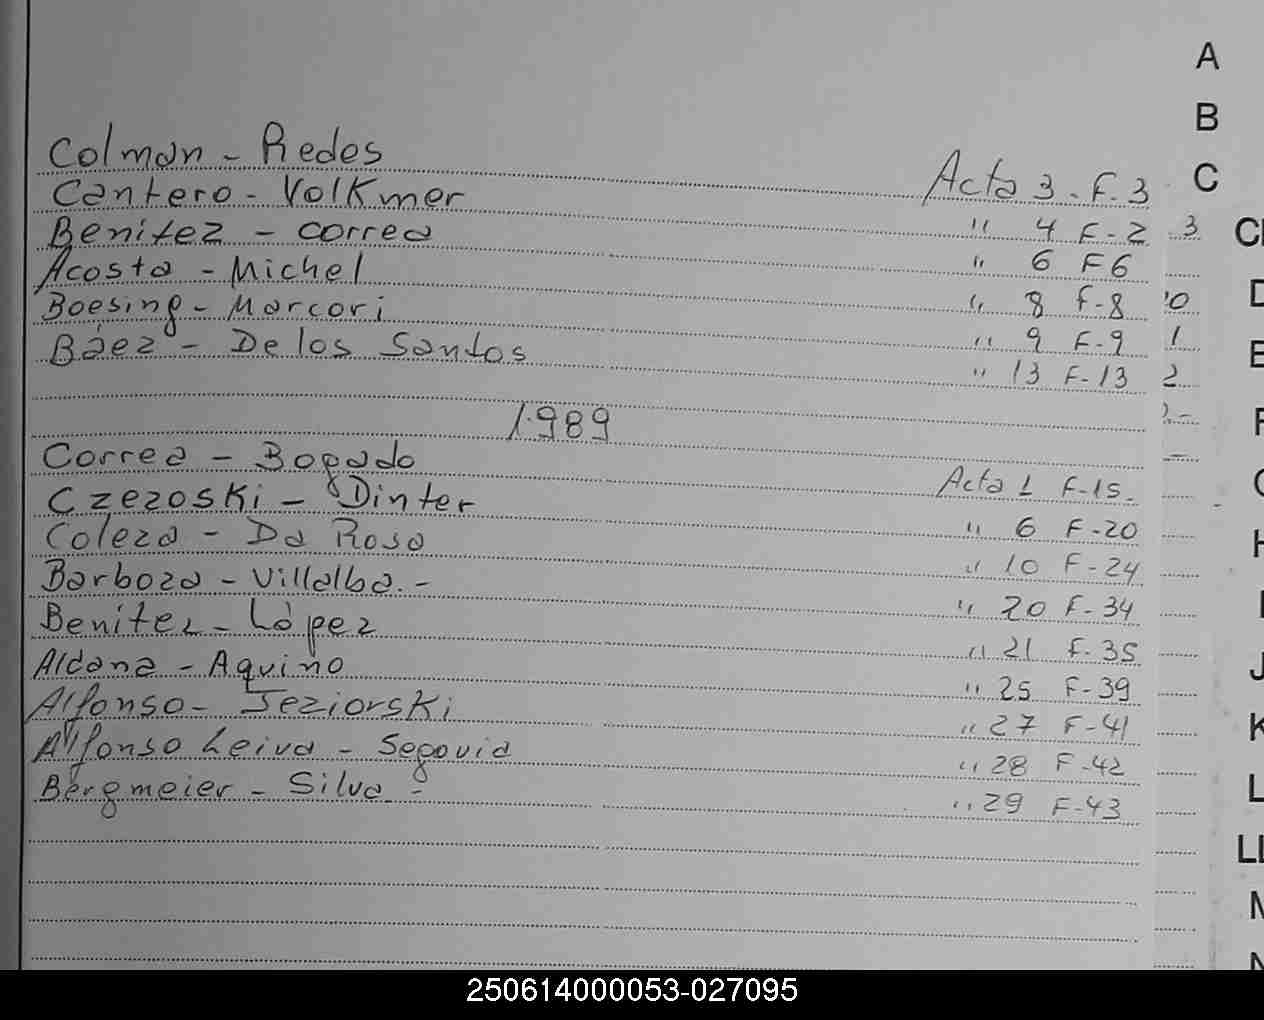 A
B
C
Colman - Redes Acta 3 - F. 3
Cantero - Volkmer " 4 F - 2
Benitez - Correa " 6 F 6
Acosta - Michel " 8 F - 8
Boesing - Marcori " 9 F - 9
Báez - De los Santos " 13 F - 13
1989
Correa - Bogado Acta 1 F-15.
Czezoski - Dinter " 6 F - 20
Coleza - Da Rosa " 10 F - 24
Barboza - Villalba. - " 20 F - 34
Benitez - López " 21 F - 35
Aldana - Aquino " 25 F - 39
Alfonso - Jeziorski " 27 F - 41
Alfonso Leiva - Segovia " 28 F - 42
Bergmeier - Silva - " 29 F - 43
3
0
1
2
H
J
K
L
LL
M
N
250614000053-027095